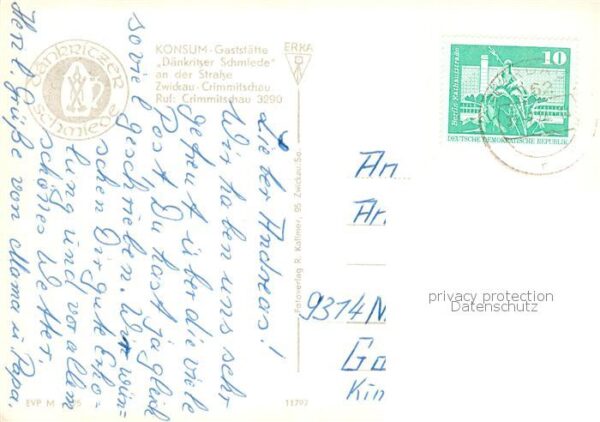 DÄNKRITZER
Schmiede
KONSUM-Gaststätte
„Dänkritzer Schmiede"
an der Straße
Zwickau-Crimmitschau
Ruf: Crimmitschau 3290
ERKA
Lieber Andreas!
Wir haben uns sehr
gefreut über die viele
Post. Du hast ja gleich
soviel geschrieben. Wir wün=
schen Dir gute Erho-
lung und vor allem
schönes Wetter.
Herzl. Grüße von Mama u. Papa.
EVP M
11797
Fotoverlag R. Kallmer, 95 Zwickau/Sa.
10
Berlin, Rathausstraße
DEUTSCHE DEMOKRATISCHE REPUBLIK
An
Ar.
9374 N
Go
Kin
privacy protection
Datenschutz